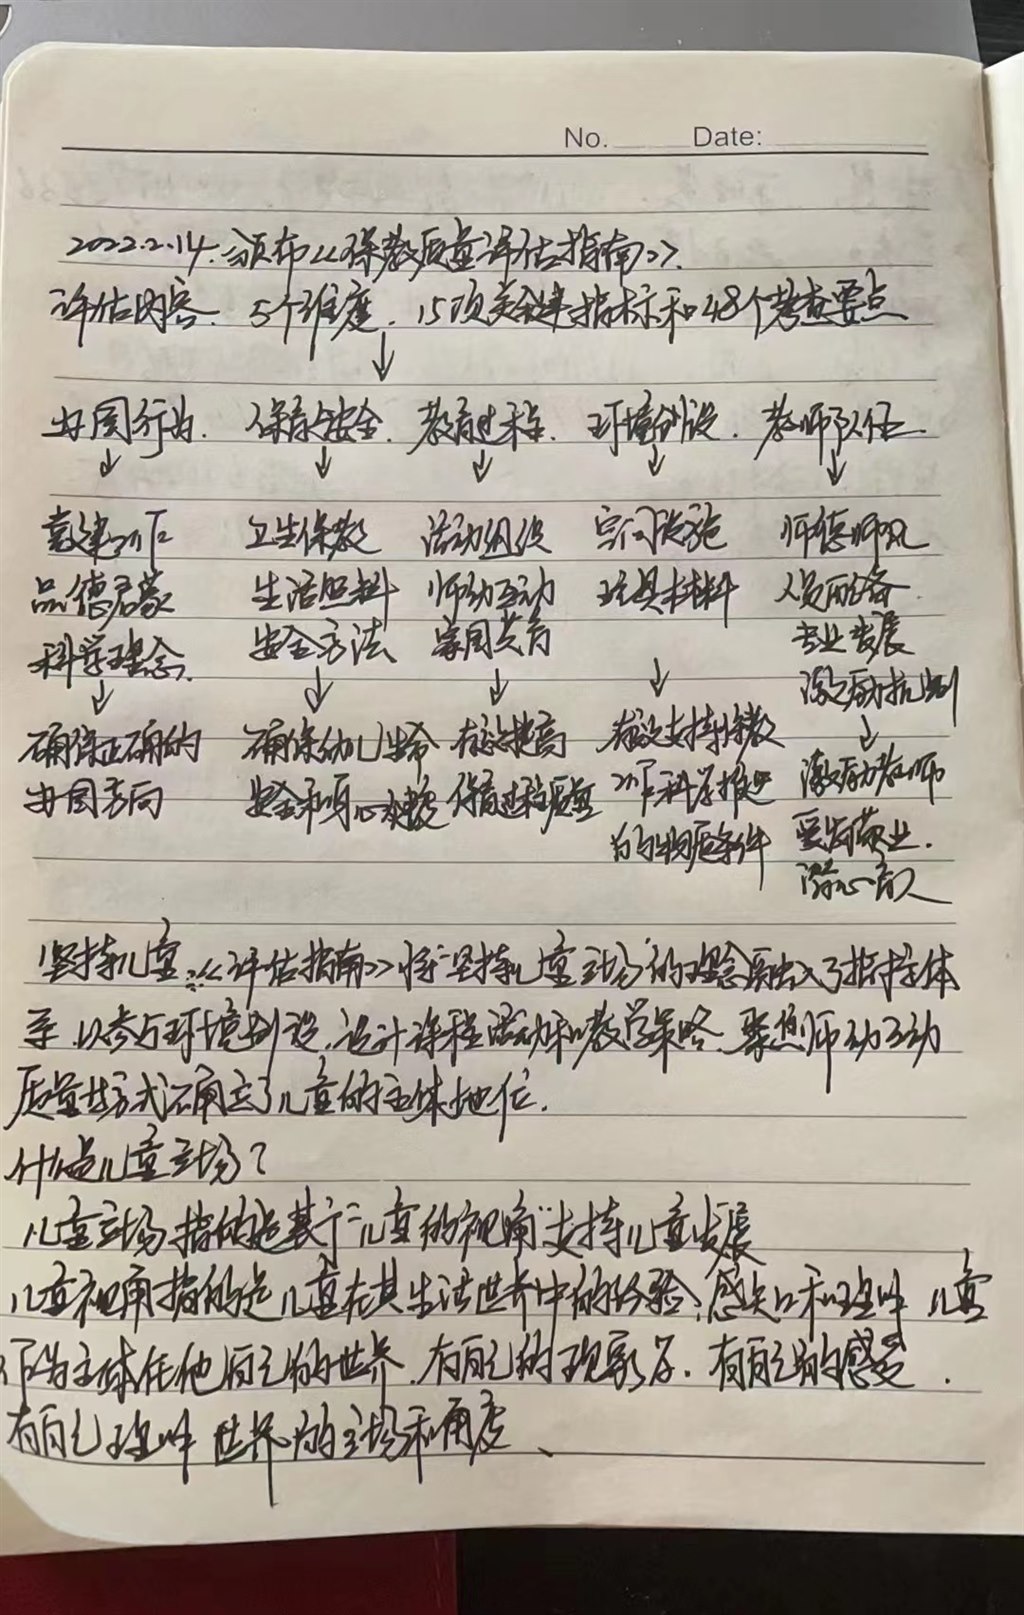 No. Date:
2022.2.14.颁布《保教质量评估指南》.
评估内容. 5个维度. 15项关键指标和48个考查要点
办园方向. 保育与安全. 教育过程. 环境创设. 教师队伍.
党建工作 卫生保教 活动组织 空间设施 师德师风
品德启蒙 生活照料 师幼互动 玩具材料 人员配备
科学理念. 安全方法 家园共育 专业发展
激励机制
确保正确的 确保幼儿生命 有效提高 有效支持保教 激励教师
办园方向 安全和身心健康 保育过程质量 工作科学推进 爱岗敬业.
的物质条件 潜心育人
坚持儿童:《评估指南》将"坚持儿童立场"的理念融入了指标体
系,以参与环境创设,设计课程活动和教学策略.聚焦师幼互动
质量等方式确立了儿童的主体地位.
什么是儿童立场?
儿童立场指的是基于"儿童的视角"支持儿童发展
儿童视角指的是儿童在其生活世界中的经验,感知和理解 儿童
作为主体在他自己的世界.有自己的现象学.有自己的感受.
有自己理解世界的立场和角度、